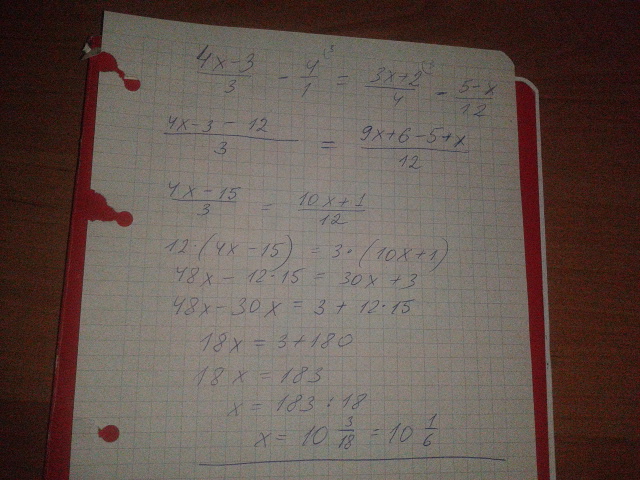 (4x-3)/3 - 4/1 (3 = (3x+2)/4 (3 - (5-x)/12
(4x-3-12)/3 = (9x+6-5+x)/12
(4x-15)/3 = (10x+1)/12
12·(4x-15) = 3·(10x+1)
48x-12·15 = 30x+3
48x-30x = 3+12·15
18x = 3+180
18x = 183
x = 183:18
x = 10 3/18 = 10 1/6